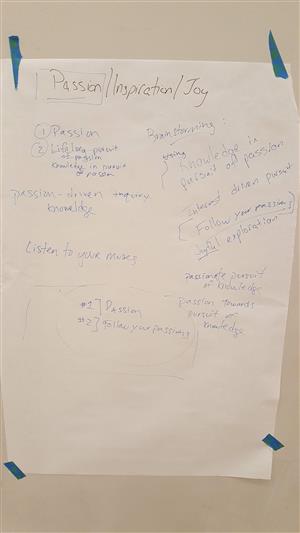 Passion/Inspiration/Joy
① Passion
② Lifelong pursuit
of passion
Knowledge in pursuit
of passion
passion-driven inquiry
knowledge
Listen to your muses
Brainstorming:
Knowledge in
pursuit of passion
Interest driven pursuit
[Follow your passions]
Joyful exploration
passionate pursuit
of knowledge
passion towards
pursuit of
knowledge
#1] Passion
#2] Follow your passions